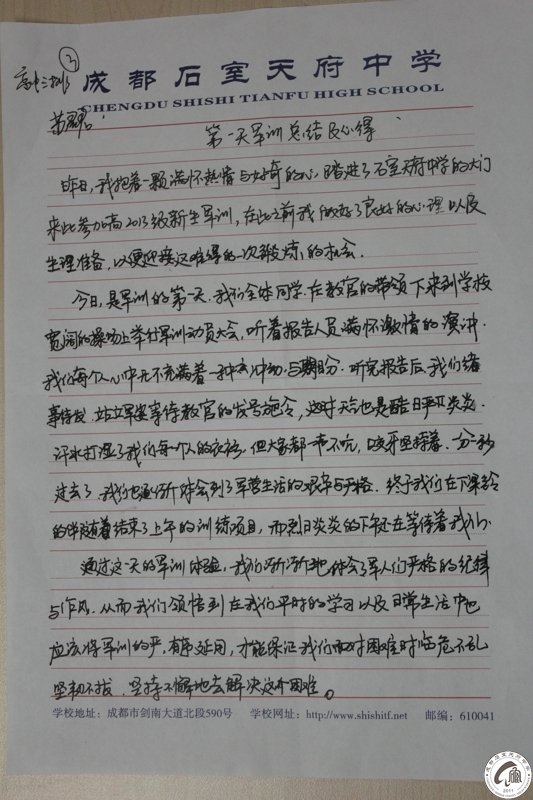 ③
高中三排
成都石室天府中学
CHENGDU SHISHI TIANFU HIGH SCHOOL
第一天军训总结及心得
昨日,我抱着一颗满怀热情与好奇的心,踏进了石室天府中学的大门
来此参加高2013级新生军训,在此之前我做好了良好的心理以及
生理准备,以便迎接这难得的一次锻炼的机会.
今日,是军训的第一天.我们全体同学.在教官的带领下来到学校
宽阔的操场上举行军训动员大会,听着报告人员满怀激情的演讲.
我们每个人心中无不充满着一种冲动与期盼.听完报告后,我们蓄
事待发.站立军姿等待教官的发号施令,这时天气也是酷日严严炎炎.
汗水打湿了我们每个人的衣衫.但大家都一声不吭,咬牙坚持着.一分一秒
过去了.我们也逐渐体会到了军营生活的艰辛与严格.终于我们在下课铃
的伴随着结束了上午的训练项目,而烈日炎炎的下午还在等待着我们.
通过这一天的军训体验,我们渐渐地体会了军人们严格的纪律
与作风.从而我们领悟到在我们平时的学习以及日常生活中也
应该将军训的严,有事延用,才能保证我们面对困难时临危不乱
坚韧不拔.坚持不懈地去解决这个困难。
学校地址:成都市剑南大道北段590号 学校网址:http://www.shishitf.net 邮编:610041
2011